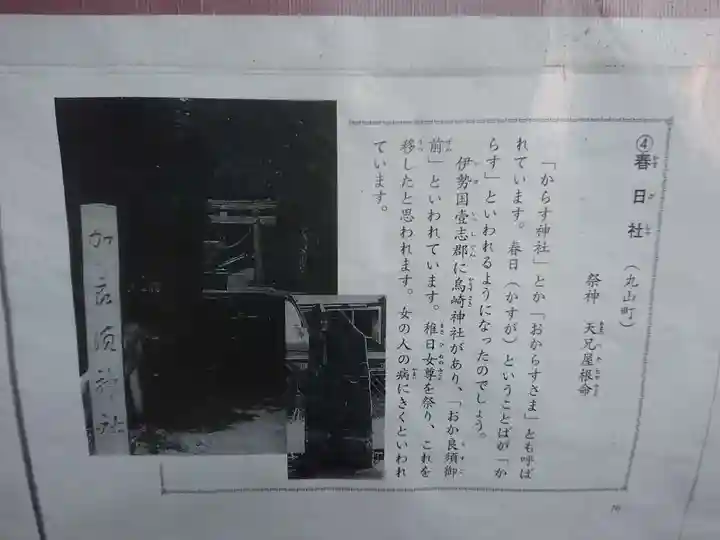 ④春日社（丸山町）
祭神　天児屋根命
「からす神社」とか「おからすさま」とも呼ば
れています。春日（かすが）ということばが「か
らす」といわれるようになったのでしょう。
伊勢国壹志郡に烏崎神社があり、「おか良須御
前」といわれています。稚日女尊を祭り、これを
移したと思われます。女の人の病にきくといわれ
ています。
加良須神社